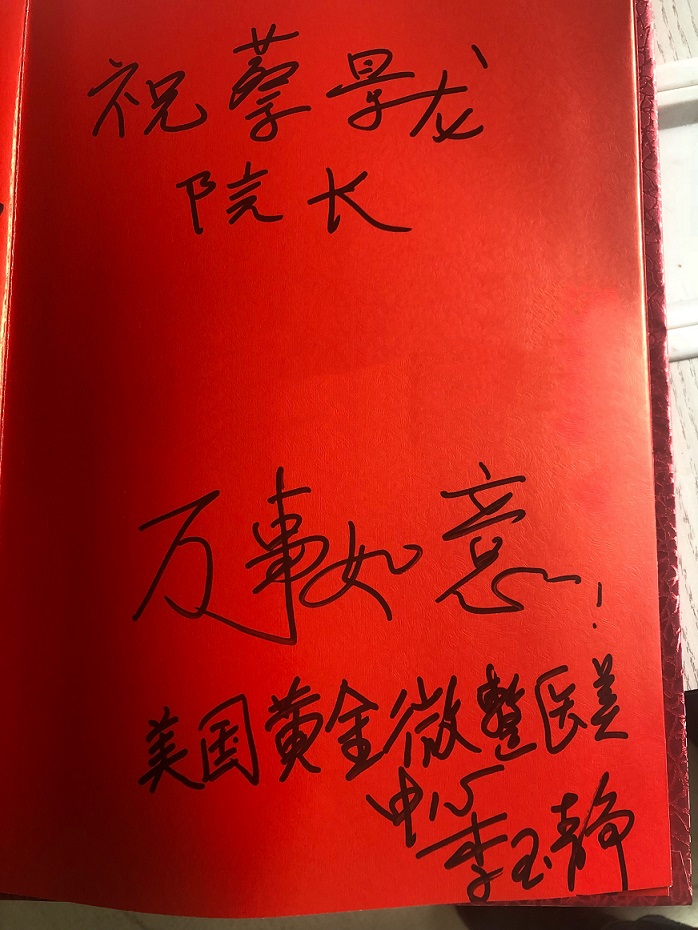 祝蔡景龙
院长
万事如意!
美国黄金微整医美
中心
李玉静